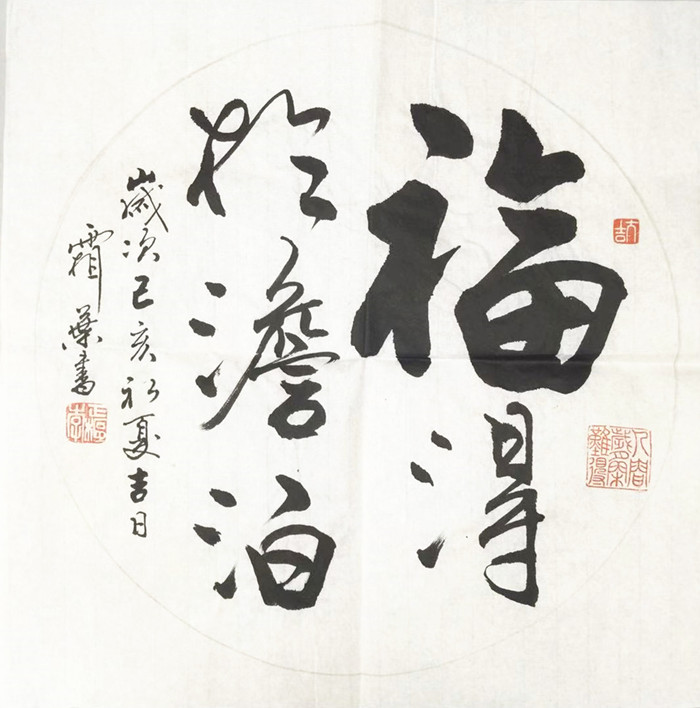 福得
於澹泊
歲次己亥初夏吉日
霜葉書
大吉